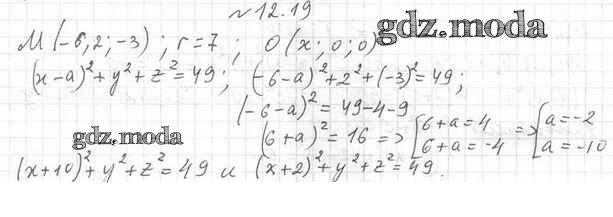 №12.19
M(-6;2;-3); r=7; O(x;0;0) gdz.moda
(x-a)²+y²+z²=49; (-6-a)²+2²+(-3)²=49;
(-6-a)²=49-4-9
gdz.moda (6+a)²=16 => [6+a=4 => [a=-2
[6+a=-4 [a=-10
(x+10)²+y²+z²=49 и (x+2)²+y²+z²=49.